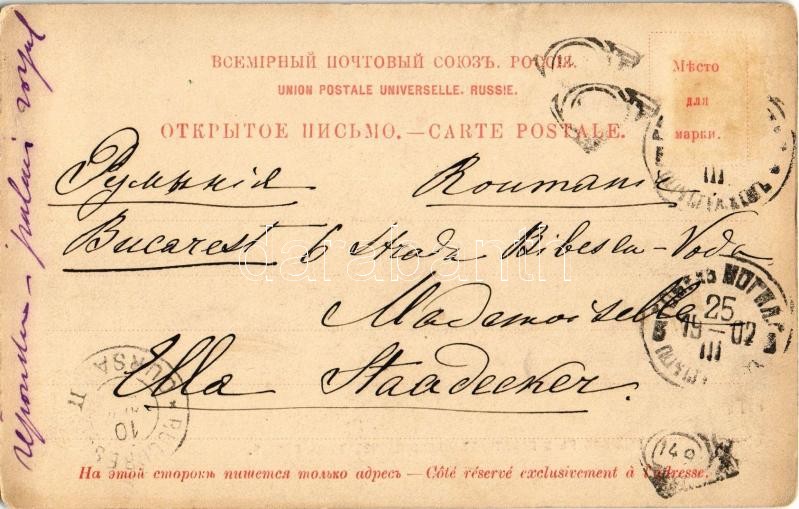 ВСЕМІРНЫЙ ПОЧТОВЫЙ СОЮЗЪ. РОССІЯ.
UNION POSTALE UNIVERSELLE. RUSSIE.
ОТКРЫТОЕ ПИСЬМО.—CARTE POSTALE.
Мѣсто
для
марки.
III
Румынія Roumanie
Bucarest 6 Strada Bibescu-Voda
Mademoiselle
Ella Staadecker.
25
19—02
III
CURSA II
10
149
На этой сторонѣ пишется только адресъ—Côté réservé exclusivement à l'adresse.
palais royal
darabanth